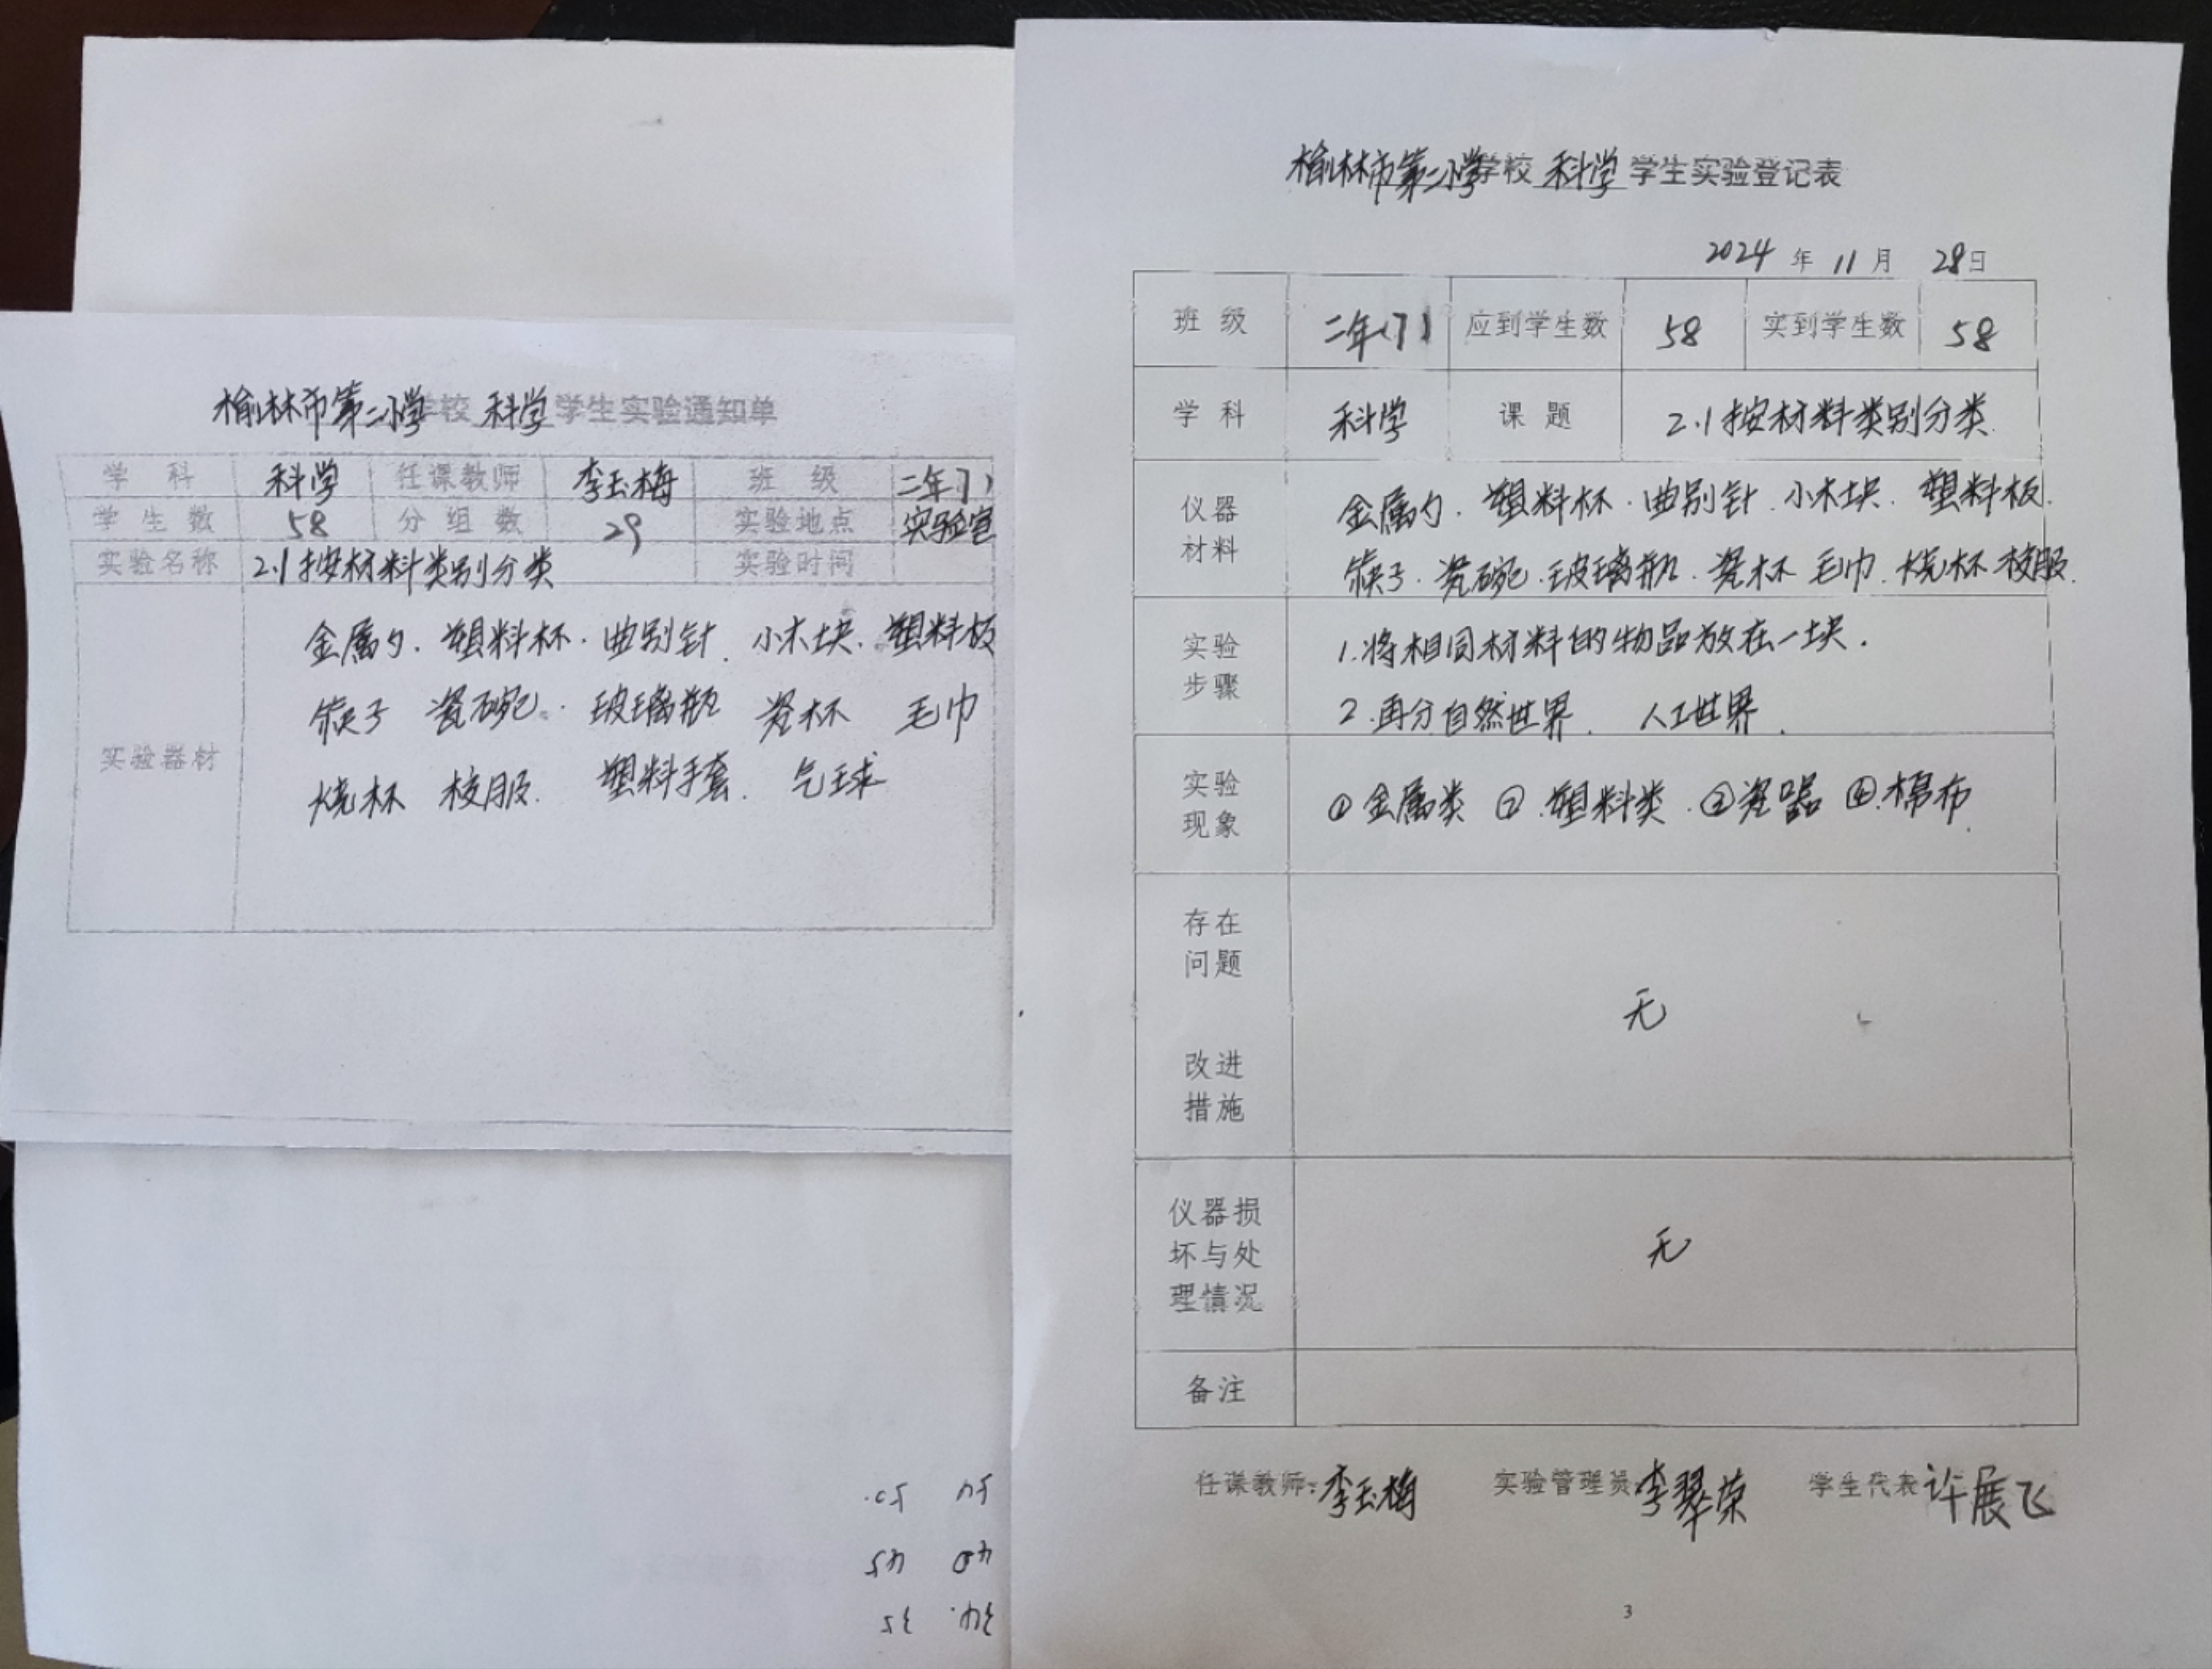 榆林市第二小学学校 科学 学生实验通知单
学 科 科学 任课教师 李玉梅 班 级 二年(7)
学 生 数 58 分 组 数 29 实验地点 实验室
实验名称 2.1按材料类别分类 实验时间
实验器材
金属勺. 塑料杯. 曲别针. 小木块. 塑料板
筷子 瓷碗. 玻璃瓶 瓷杯 毛巾
烧杯 校服. 塑料手套. 气球
榆林市第二小学学校 科学 学生实验登记表
2024 年 11 月 28 日
班 级 二年(7) 应到学生数 58 实到学生数 58
学 科 科学 课 题 2.1按材料类别分类.
仪器
材料
金属勺. 塑料杯. 曲别针. 小木块. 塑料板.
筷子. 瓷碗. 玻璃瓶. 瓷杯 毛巾. 烧杯 校服.
实验
步骤
1.将相同材料的物品放在一块.
2.再分自然世界. 人工世界.
实验
现象
①金属类 ②.塑料类.③瓷器 ④.棉布.
存在
问题
改进
措施
无
仪器损
坏与处
理情况
无
备注
任课教师:李玉梅 实验管理员:李翠荣 学生代表 许展飞
3